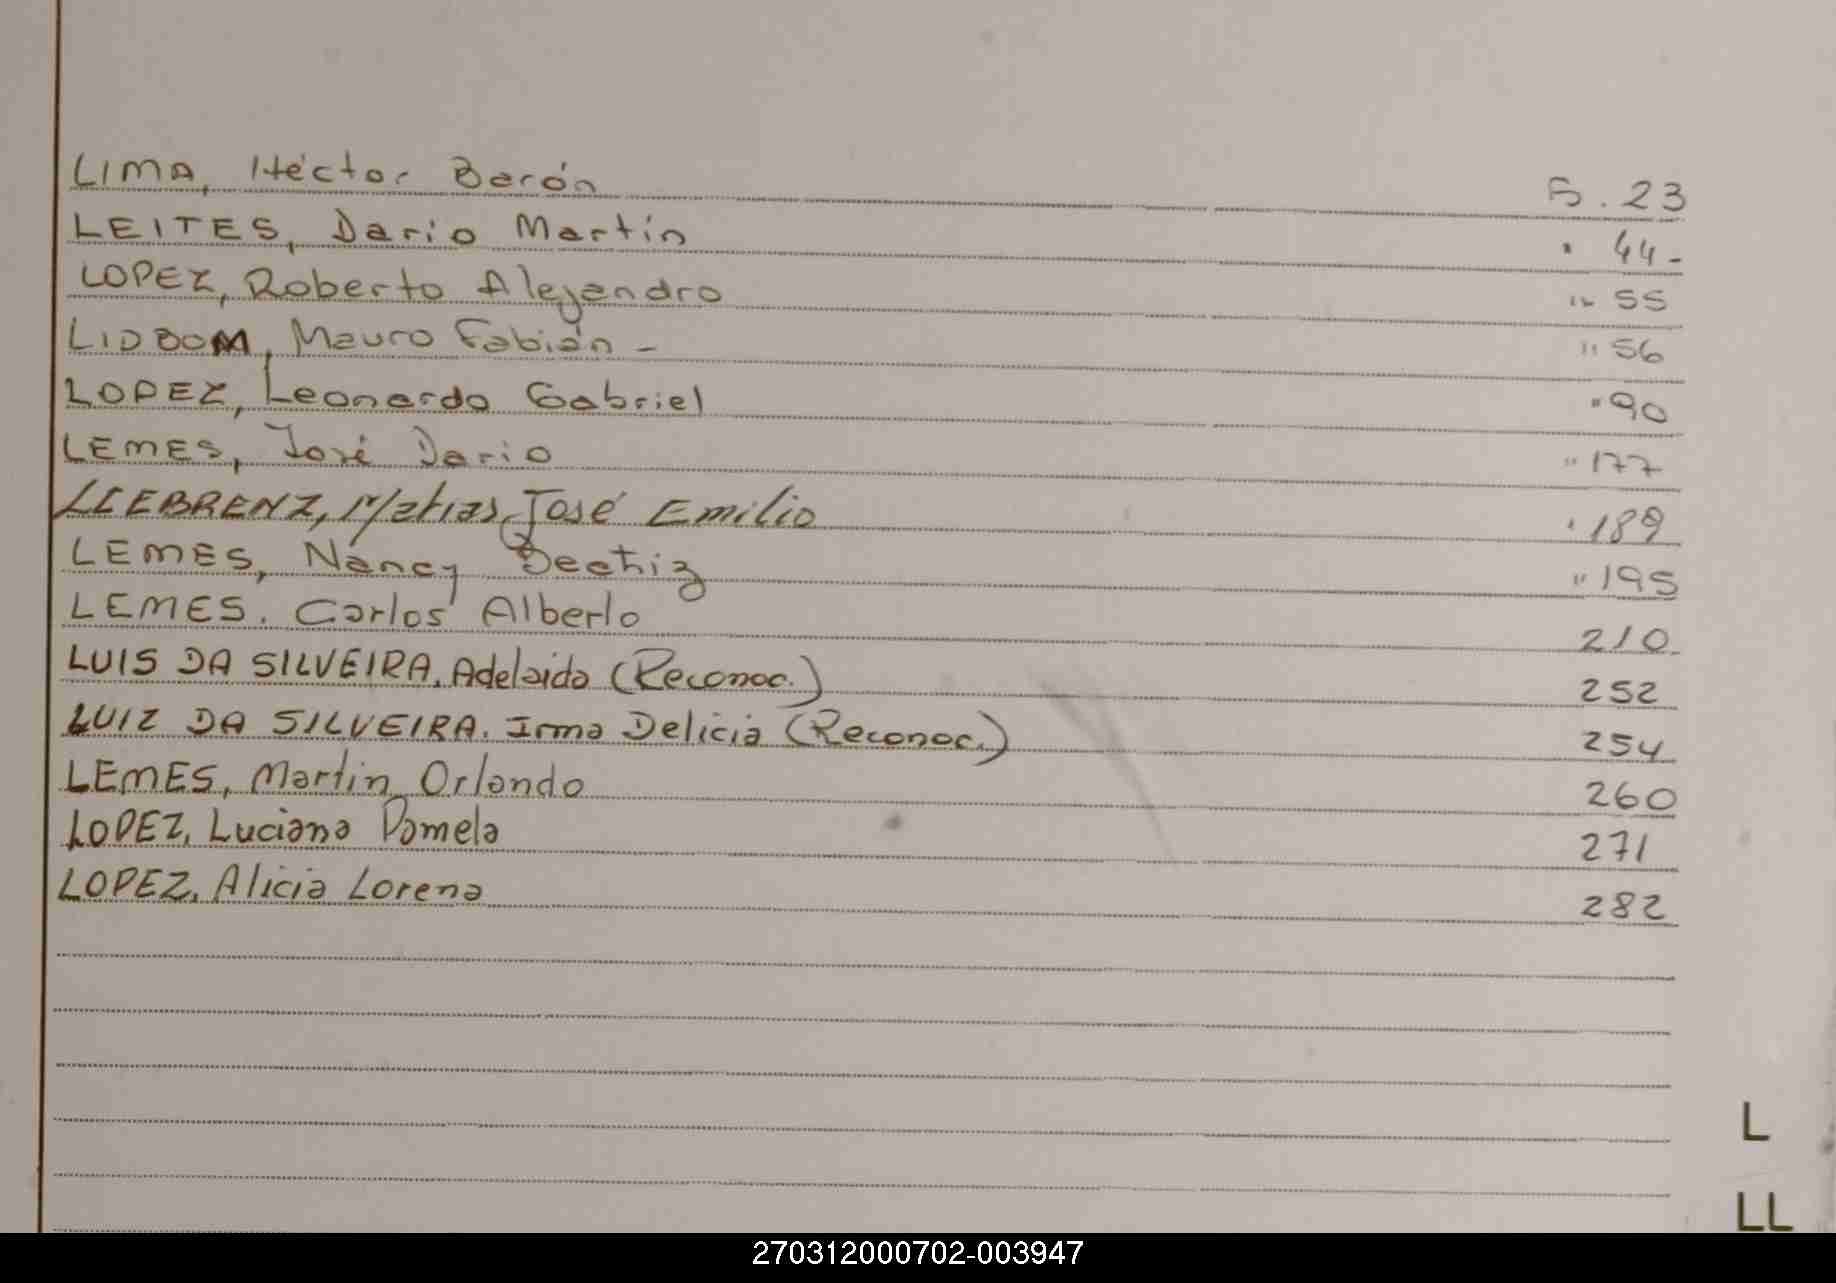 LIMA, Héctor Berón F. 23
LEITES, Dario Martín " 44-
LOPEZ, Roberto Alejandro " 55
LIDBOM, Mauro Fabián - " 56
LOPEZ, Leonardo Gabriel " 90
LEMES, José Dario " 177
LLEBRENZ, Matias, José Emilio " 189
LEMES, Nancy Beatriz " 195
LEMES. Carlos Alberto 210
LUIS DA SILVEIRA. Adelaida (Reconoc.) 252
LUIZ DA SILVEIRA. Irma Delicia (Reconoc.) 254
LEMES, Martin Orlando 260
LOPEZ, Luciana Pamela 271
LOPEZ. Alicia Lorena 282
L
LL
270312000702-003947